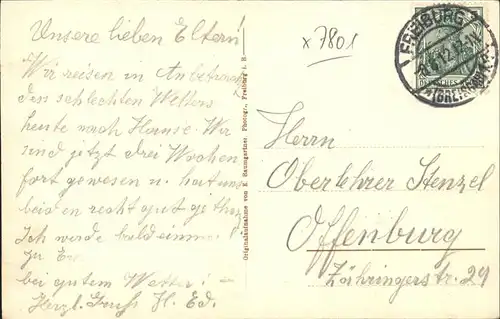 Unsere lieben Eltern!
Wir reisen in Anbetracht
des schlechten Wetters
heute nach Hause. Wir
sind jetzt drei Wochen
fort gewesen u. hat uns
beiden recht gut getan.
Ich werde bald einmal
zu
bei gutem Wetter!
Herzl. Gruss H. Ed.
Originalaufnahme von E. Baumgartner, Photogr., Freiburg i. B.
x 7801
FREIBURG
(BREISGAU)
Herrn
Oberlehrer Stenzel
Offenburg
Zähringerstr. 29